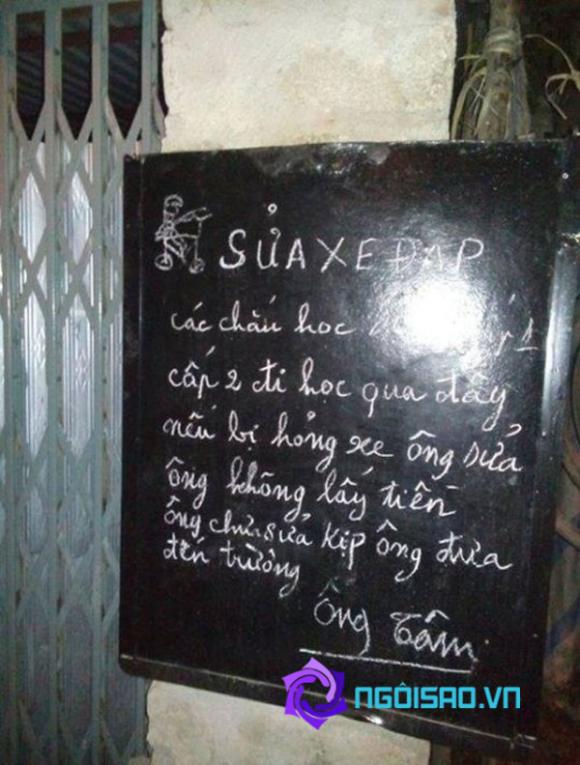 SỬA XE ĐẠP
các cháu học
cấp 2 đi học qua đây
nếu bị hỏng xe ông sửa
ông không lấy tiền
ông chưa sửa kịp ông đưa
đến trường
Ông Tâm
NGÔISAO.VN